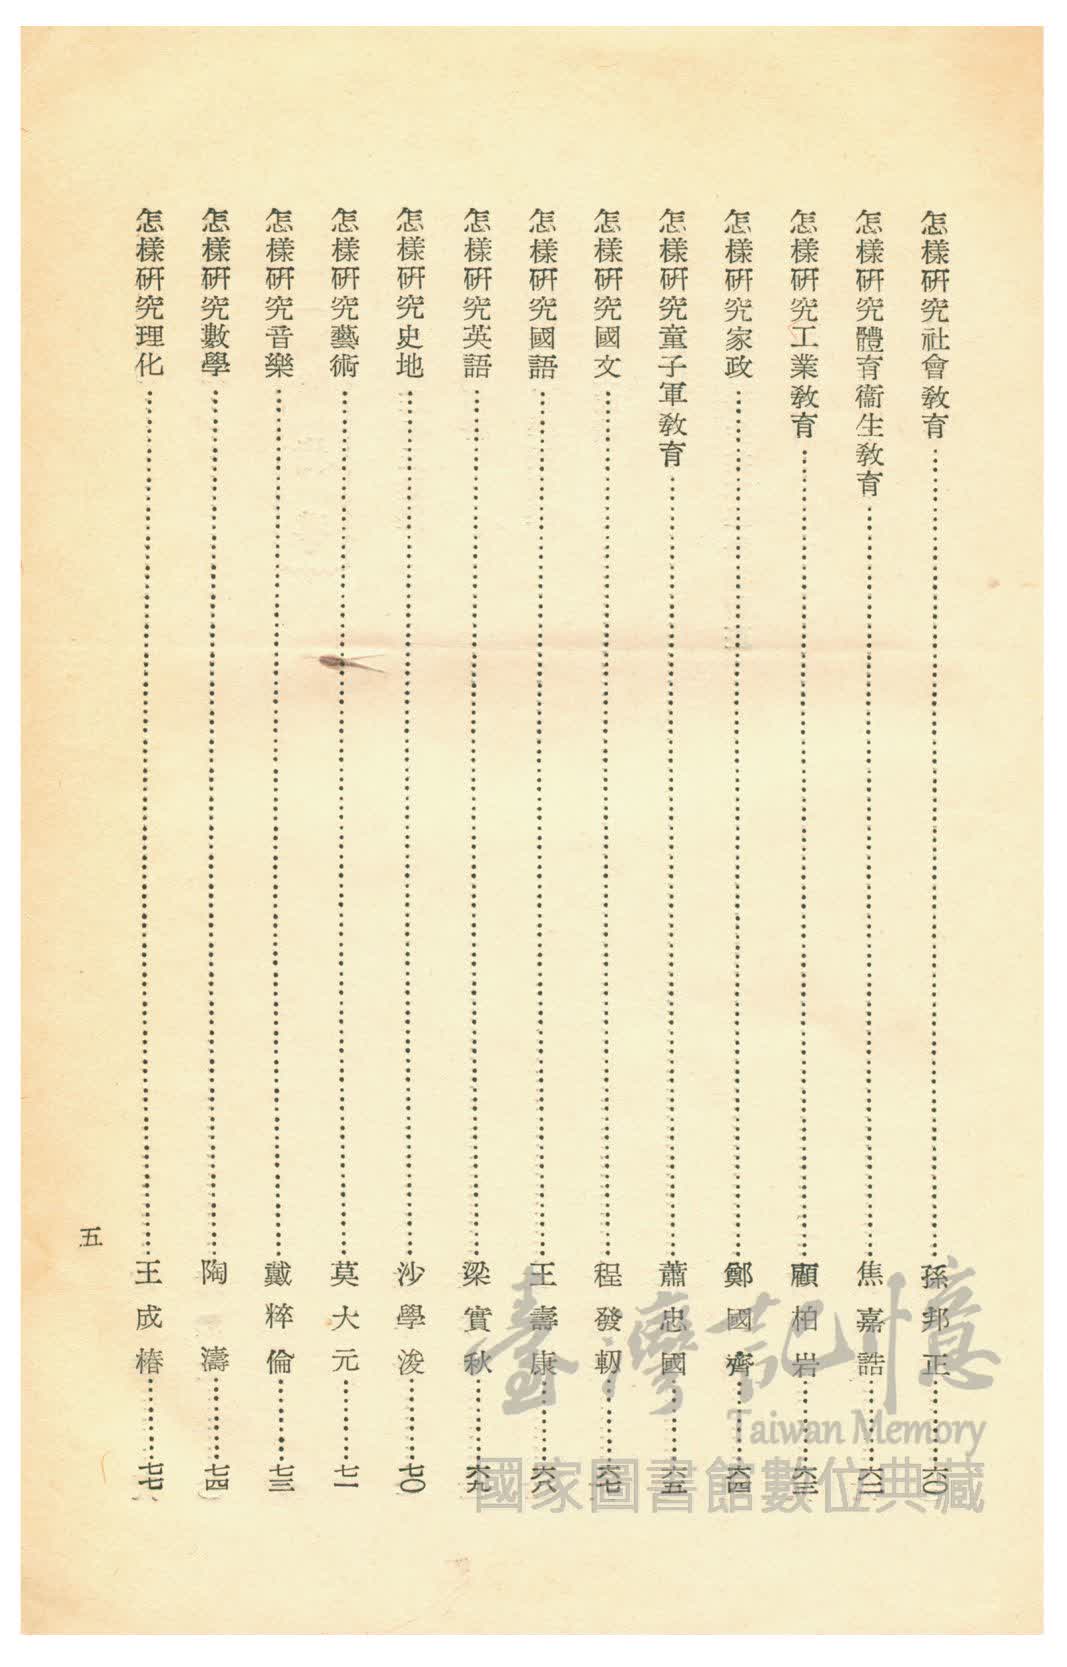 怎樣研究社會教育……孫邦正……六〇
怎樣研究體育衞生教育……焦嘉誥……六二
怎樣研究工業教育……顧柏岩……六三
怎樣研究家政……鄭國齊……六四
怎樣研究童子軍教育……蕭忠國……六五
怎樣研究國文……程發軔……六七
怎樣研究國語……王壽康……六八
怎樣研究英語……梁實秋……六九
怎樣研究史地……沙學浚……七〇
怎樣研究藝術……莫大元……七一
怎樣研究音樂……戴粹倫……七三
怎樣研究數學……陶濤……七四
怎樣研究理化……王成椿……七七
五
臺灣記憶
Taiwan Memory
國家圖書館數位典藏